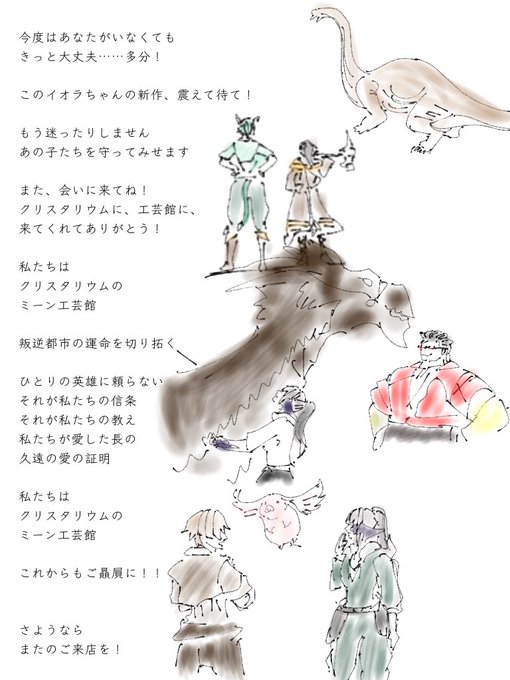 今度はあなたがいなくても
きっと大丈夫……多分！
このイオラちゃんの新作、震えて待て！
もう迷ったりしません
あの子たちを守ってみせます
また、会いに来てね！
クリスタリウムに、工芸館に、
来てくれてありがとう！
私たちは
クリスタリウムの
ミーン工芸館
叛逆都市の運命を切り拓く
ひとりの英雄に頼らない
それが私たちの信条
それが私たちの教え
私たちが愛した長の
久遠の愛の証明
私たちは
クリスタリウムの
ミーン工芸館
これからもご贔屓に！！
さようなら
またのご来店を！